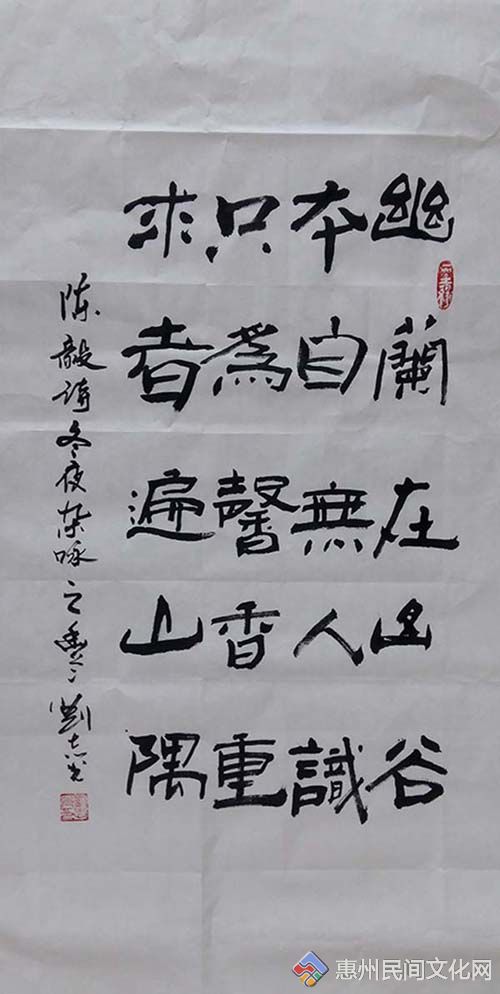 幽蘭在山谷
本自無人識
只爲馨香重
求者遍山隅
陈毅诗冬夜杂咏之幽兰 劉志
惠州民间文化网